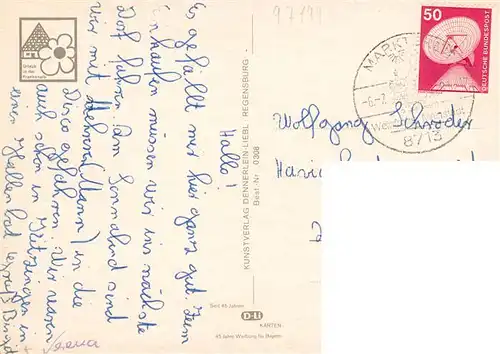 Hallo!
Es gefällt mir hier ganz gut. Zum
Einkaufen müssen wir ins nächste
Dorf fahren. Am Sonnabend sind
wir mit Mann) in die
Disco gefahren. Wir waren
auch schon in Kitzingen in
einem Hallenbad
Verena
Urlaub
in der
KUNSTVERLAG DENNERLEIN-LIEBL REGENSBURG -
Best.-Nr. 0308
Seit 45 Jahren
D-Li
KARTEN
45 Jahre Werbung für Bayern
97199
50
DEUTSCHE BUNDESPOST
MARKT
8713
Wolfgang Schröder